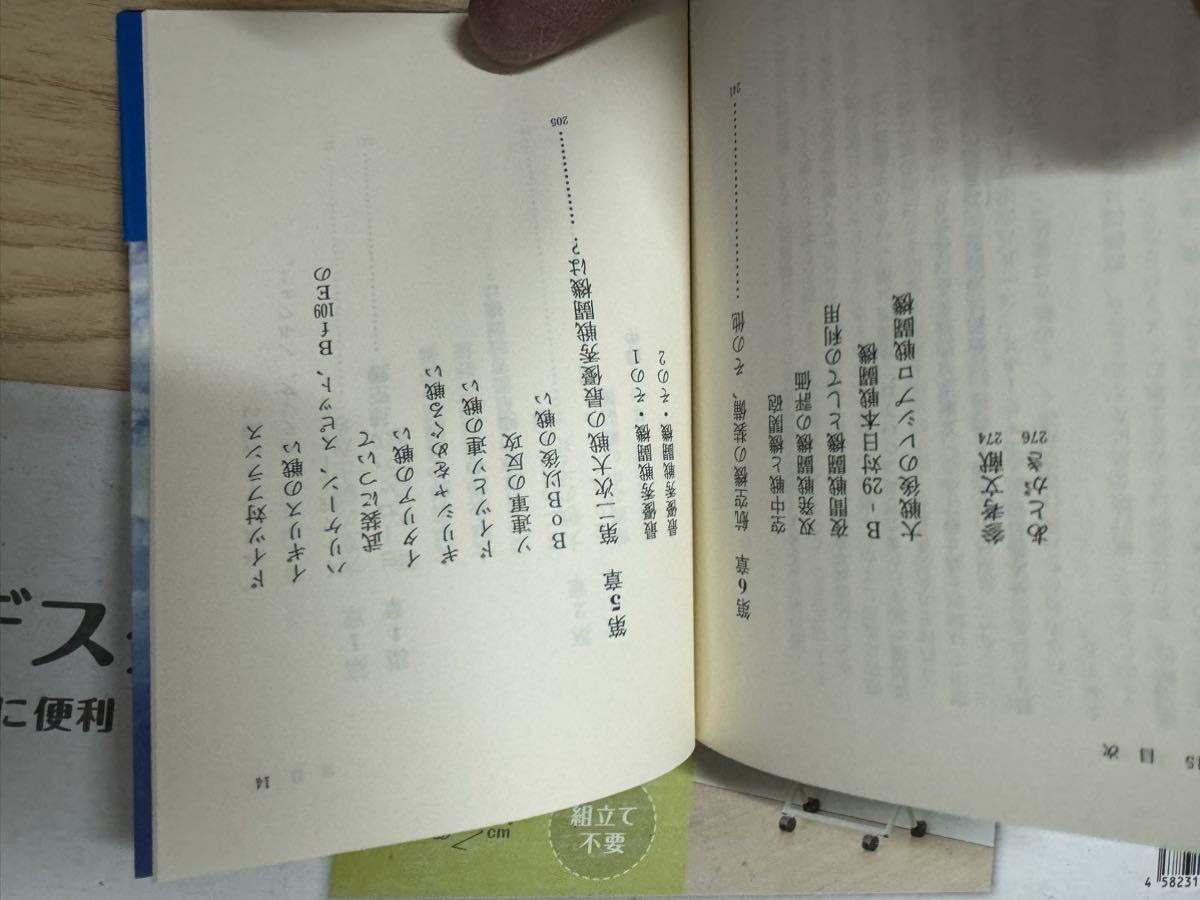 14
ドイツ対フランス
イギリスの戦い
ハリケーン、スピット、Bf109Eの
武装について
イタリアの戦い
ギリシャをめぐる戦い
ドイツとソ連の戦い
ソ連軍の反攻
BoB以後の戦い
第5章 第二次大戦の最優秀戦闘機は?……………205
最優秀戦闘機・その1
最優秀戦闘機・その2
目次
第6章 航空機の装備、その他……………241
空中戦と機関砲
双発戦闘機の評価
夜間戦闘機としての利用
B-29対日本戦闘機
大戦後のレシプロ戦闘機
参考文献 274
あとがき 276
デス
に便利
cm
組立て
不要
4 58231